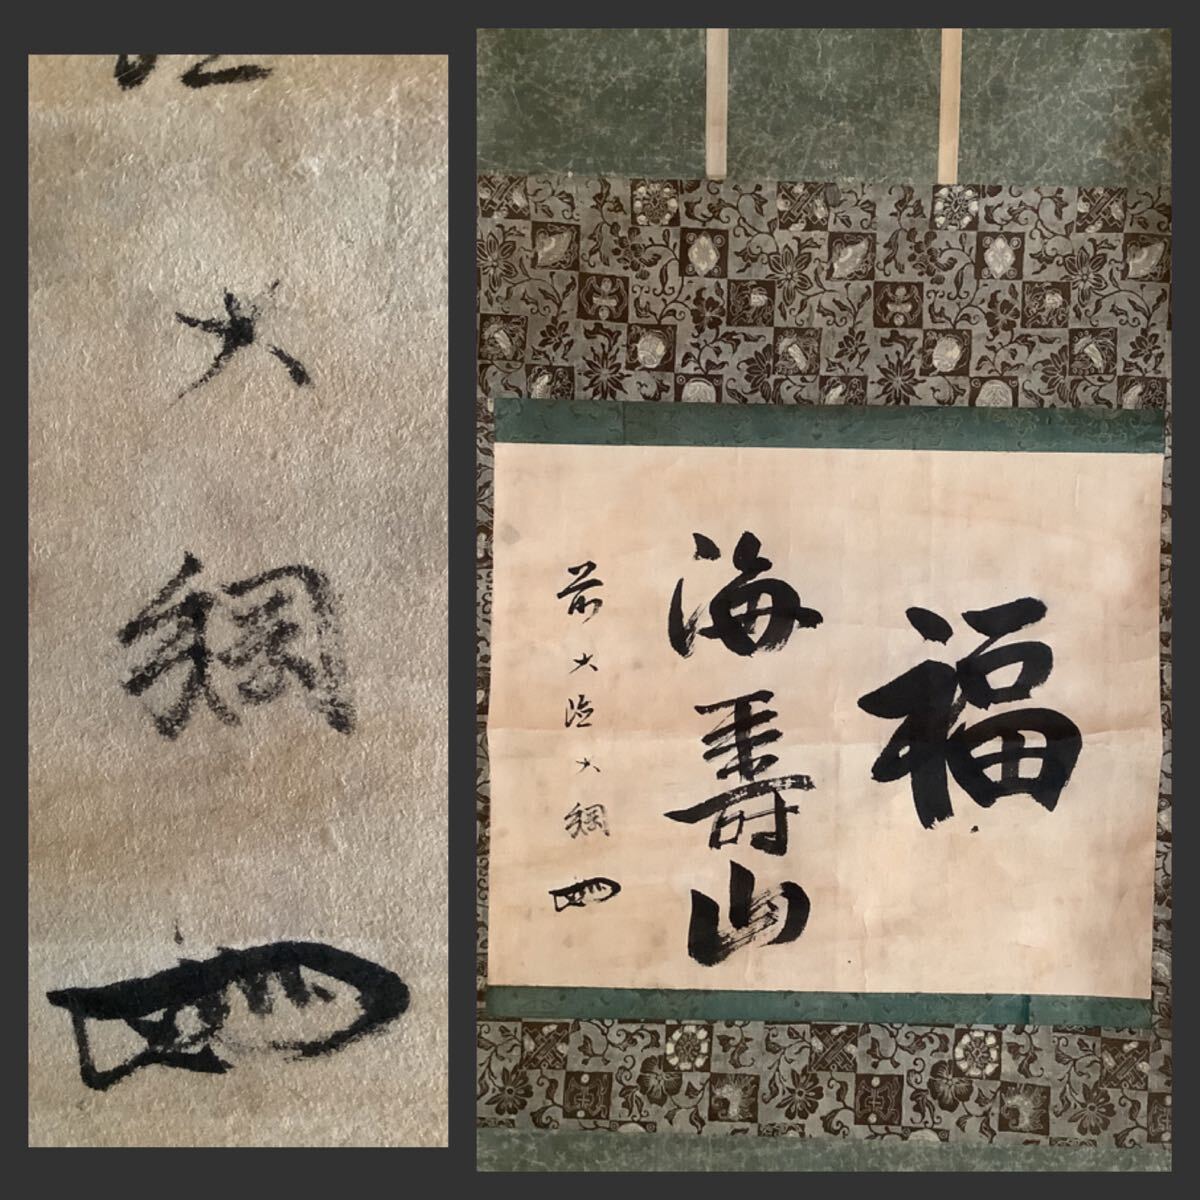 福
海壽山
前大徳大綱
大綱